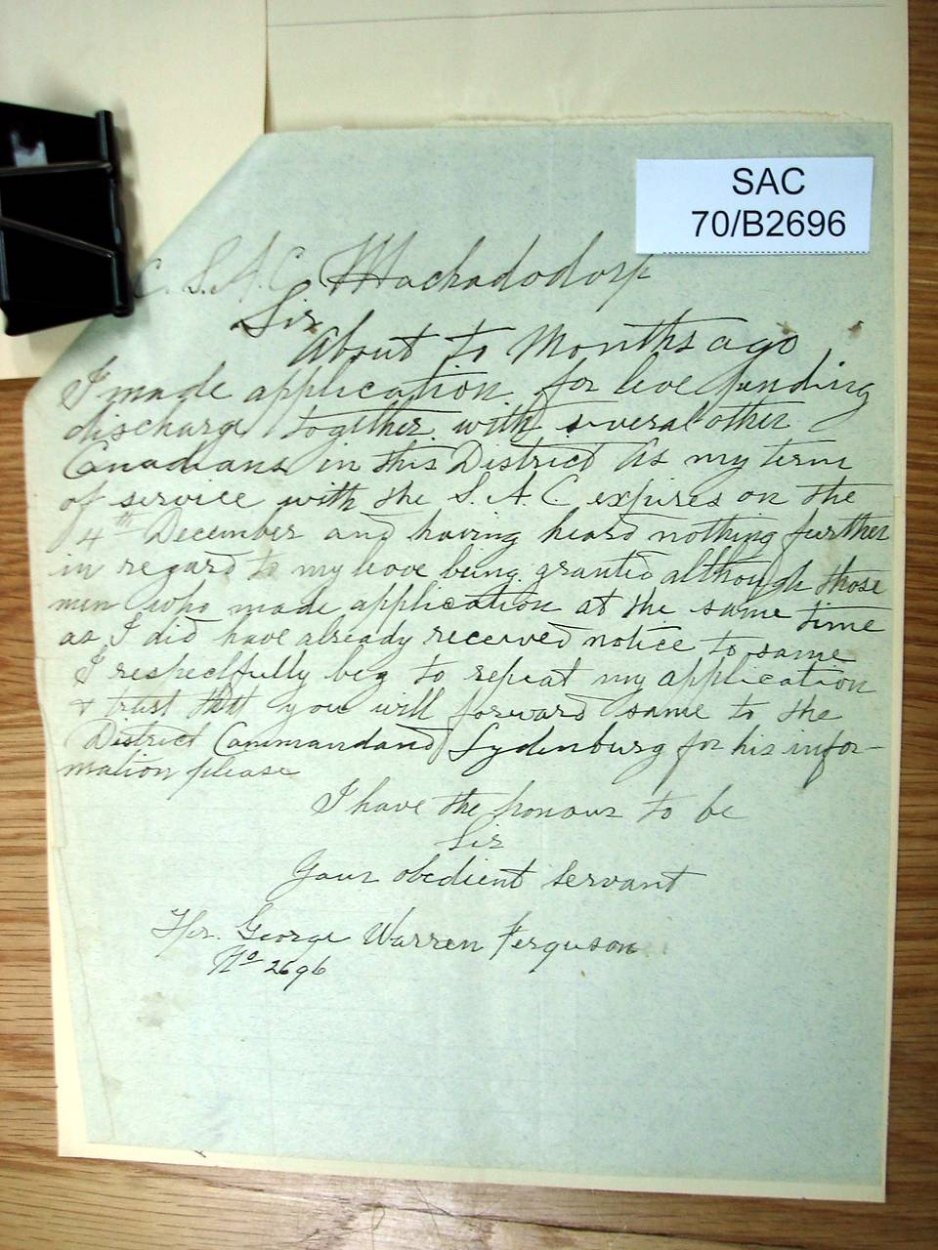 SAC
70/B2696
C. S.A.C. Machadodorp
Sir
About to Months ago
I made application for leve pending
discharge together with several other
Canadians in this District As my term
of service with the S. A. C. expires on the
14th December and having heard nothing further
in regard to my leave being granted although those
men who made application at the same time
as I did have already received notice to same
I respectfully beg to repeat my application
& trust that you will forward same to the
District Commandand Lydenburg for his infor-
mation please
I have the honour to be
Sir
Your obedient servant
George Warren Ferguson
No 2696